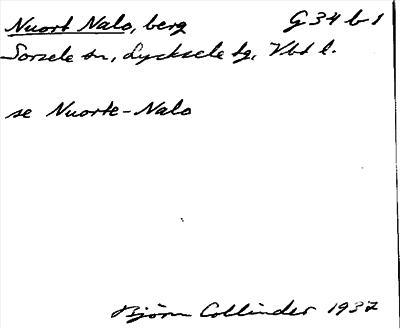 Nuort Nalo, berg G 34 b 1
Sorsele sn, Lycksele tg, Vbt l.
se Nuorte-Nalo
Björn Collinder 1937